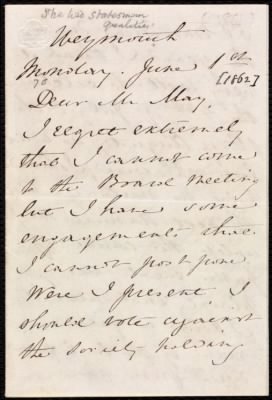 She has statesman
qualities
Weymouth
Monday. June 1st
[1862]
78
Dear Mr May,
I regret extremely
that I cannot come
to the Board meeting
but I have some
engagements there
I cannot postpone
Were I present I
should vote against
the society holding